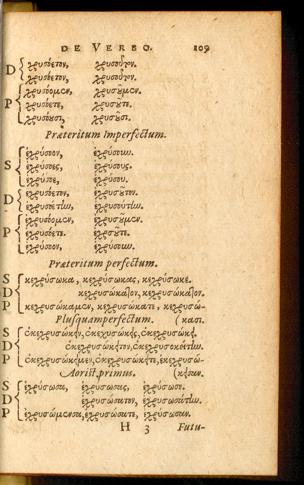 DE VERBO. 109
D χρυσόετον, χρυσοῦτον.
χρυσόετον, χρυσοῦτον.
P χρυσόομεν, χρυσοῦμεν.
χρυσόετε, χρυσοῦτε.
χρυσόουσι, χρυσοῦσι.
Præteritum Imperfectum.
S ἐχρύσοον, ἐχρύσουν.
ἐχρύσοες, ἐχρύσους.
ἐχρύσοε, ἐχρύσου.
D ἐχρυσόετον, ἐχρυσοῦτον.
ἐχρυσοέτην, ἐχρυσούτην.
P ἐχρυσόομεν, ἐχρυσοῦμεν.
ἐχρυσόετε, ἐχρυσοῦτε.
ἐχρύσοον, ἐχρύσουν.
Præteritum perfectum.
S κεχρύσωκα, κεχρύσωκας, κεχρύσωκε.
D κεχρυσώκατον, κεχρυσώκατον.
P κεχρυσώκαμεν, κεχρυσώκατε, κεχρυσώ-
Plusquamperfectum. κασι.
S ἐκεχρυσώκην, ἐκεχρυσώκης, ἐκεχρυσώκη.
D ἐκεχρυσώκητον, ἐκεχρυσοκήτην.
P ἐκεχρυσώκημεν, ἐκεχρυσώκητε, ἐκεχρυσώ-
Aorist. primus. (κησαν.
S ἐχρύσωσα, ἐχρύσωσας, ἐχρύσωσε.
D ἐχρυσώσατον, ἐχρυσωσάτην.
P ἐχρυσώσαμεν, ἐχρυσώσατε, ἐχρύσωσαν.
H 3 Futu-